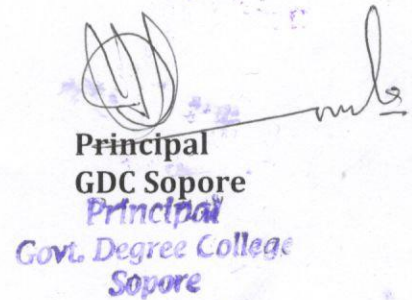 Principal
GDC Sopore
Principal
Govt. Degree College
Sopore